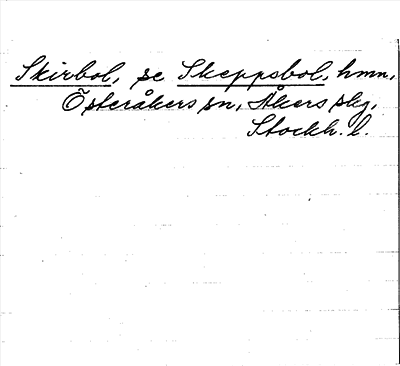 Skirbol, se Skeppsbol, hmn,
Österåkers sn, Åkers skg,
Stockh. l.